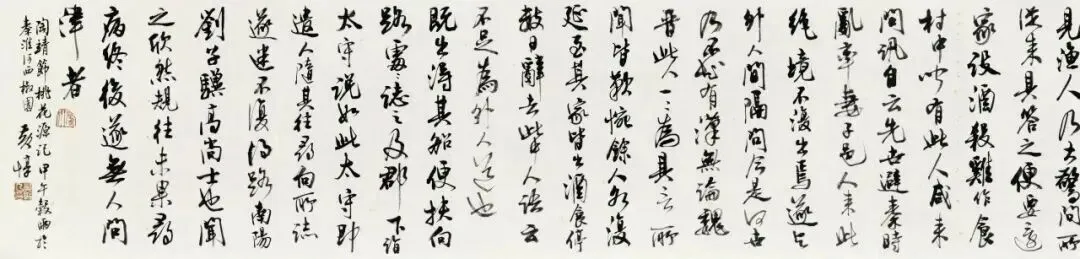 見漁人乃大驚問所
從來具答之便要還
家設酒殺雞作食
村中聞有此人咸來
問訊自云先世避秦時
亂率妻子邑人來此
絕境不復出焉遂與
外人間隔問今是何世
乃不知有漢無論魏
晉此人一一為具言所
聞皆歎惋餘人各復
延至其家皆出酒食停
數日辭去此中人語云
不足為外人道也
既出得其船便扶向
路處〻誌之及郡下詣
太守說如此太守即
遣人隨其往尋向所誌
遂迷不復得路南陽
劉子驥高尚士也聞
之欣然規往未果尋
病終後遂無人問
津者
陶靖節桃花源記甲午穀雨於
秦淮河西椒園黃惇